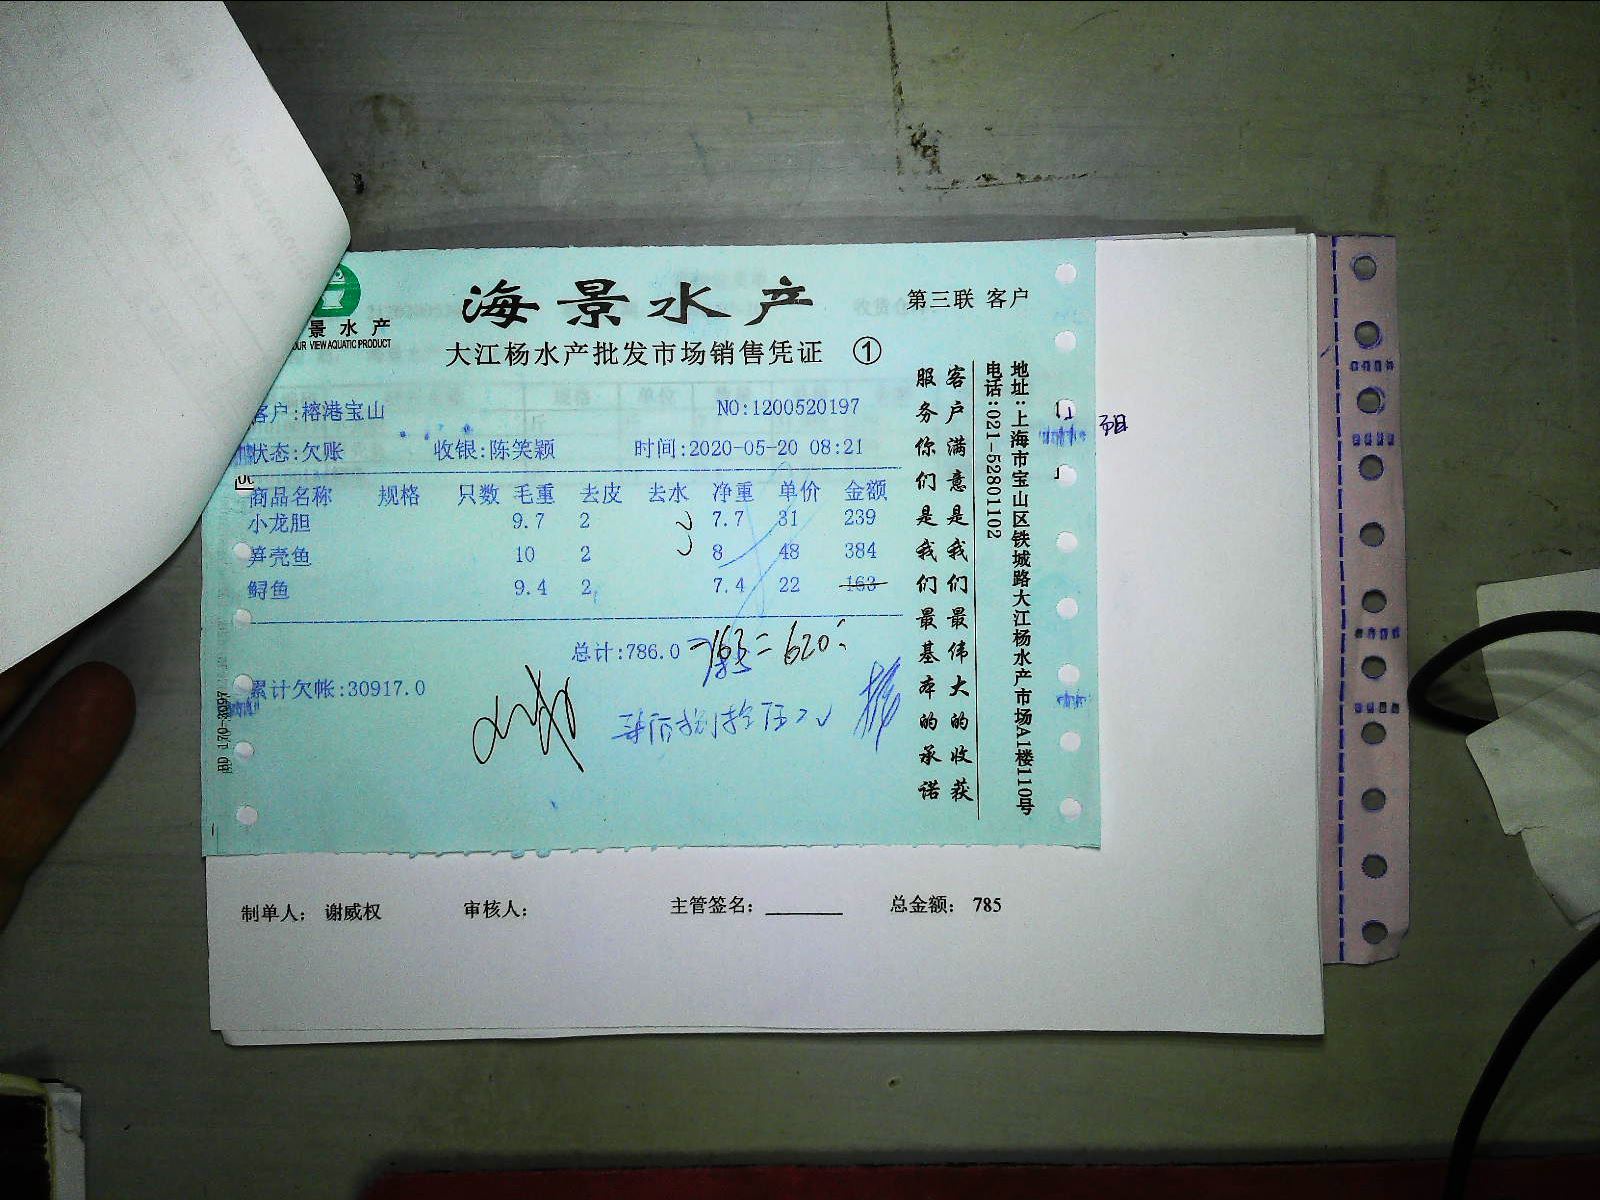 海景水产
第三联 客户
景水产
OUR VIEW AQUATIC PRODUCT
大江杨水产批发市场销售凭证 ①
客户:榕港宝山 NO:1200520197
状态:欠账 收银:陈笑颖 时间:2020-05-20 08:21
商品名称 规格 只数 毛重 去皮 去水 净重 单价 金额
小龙胆 9.7 2 7.7 31 239
笋壳鱼 10 2 8 48 384
鲟鱼 9.4 2 7.4 22 163
总计:786.0 -163=620
累计欠帐:30917.0
客户满意是我们最伟大的收获
服务你们是我们最基本的承诺
地址:上海市宝山区铁城路大江杨水产市场A1楼110号
电话:021-52801102
制单人: 谢威权 审核人: 主管签名: 总金额: 785